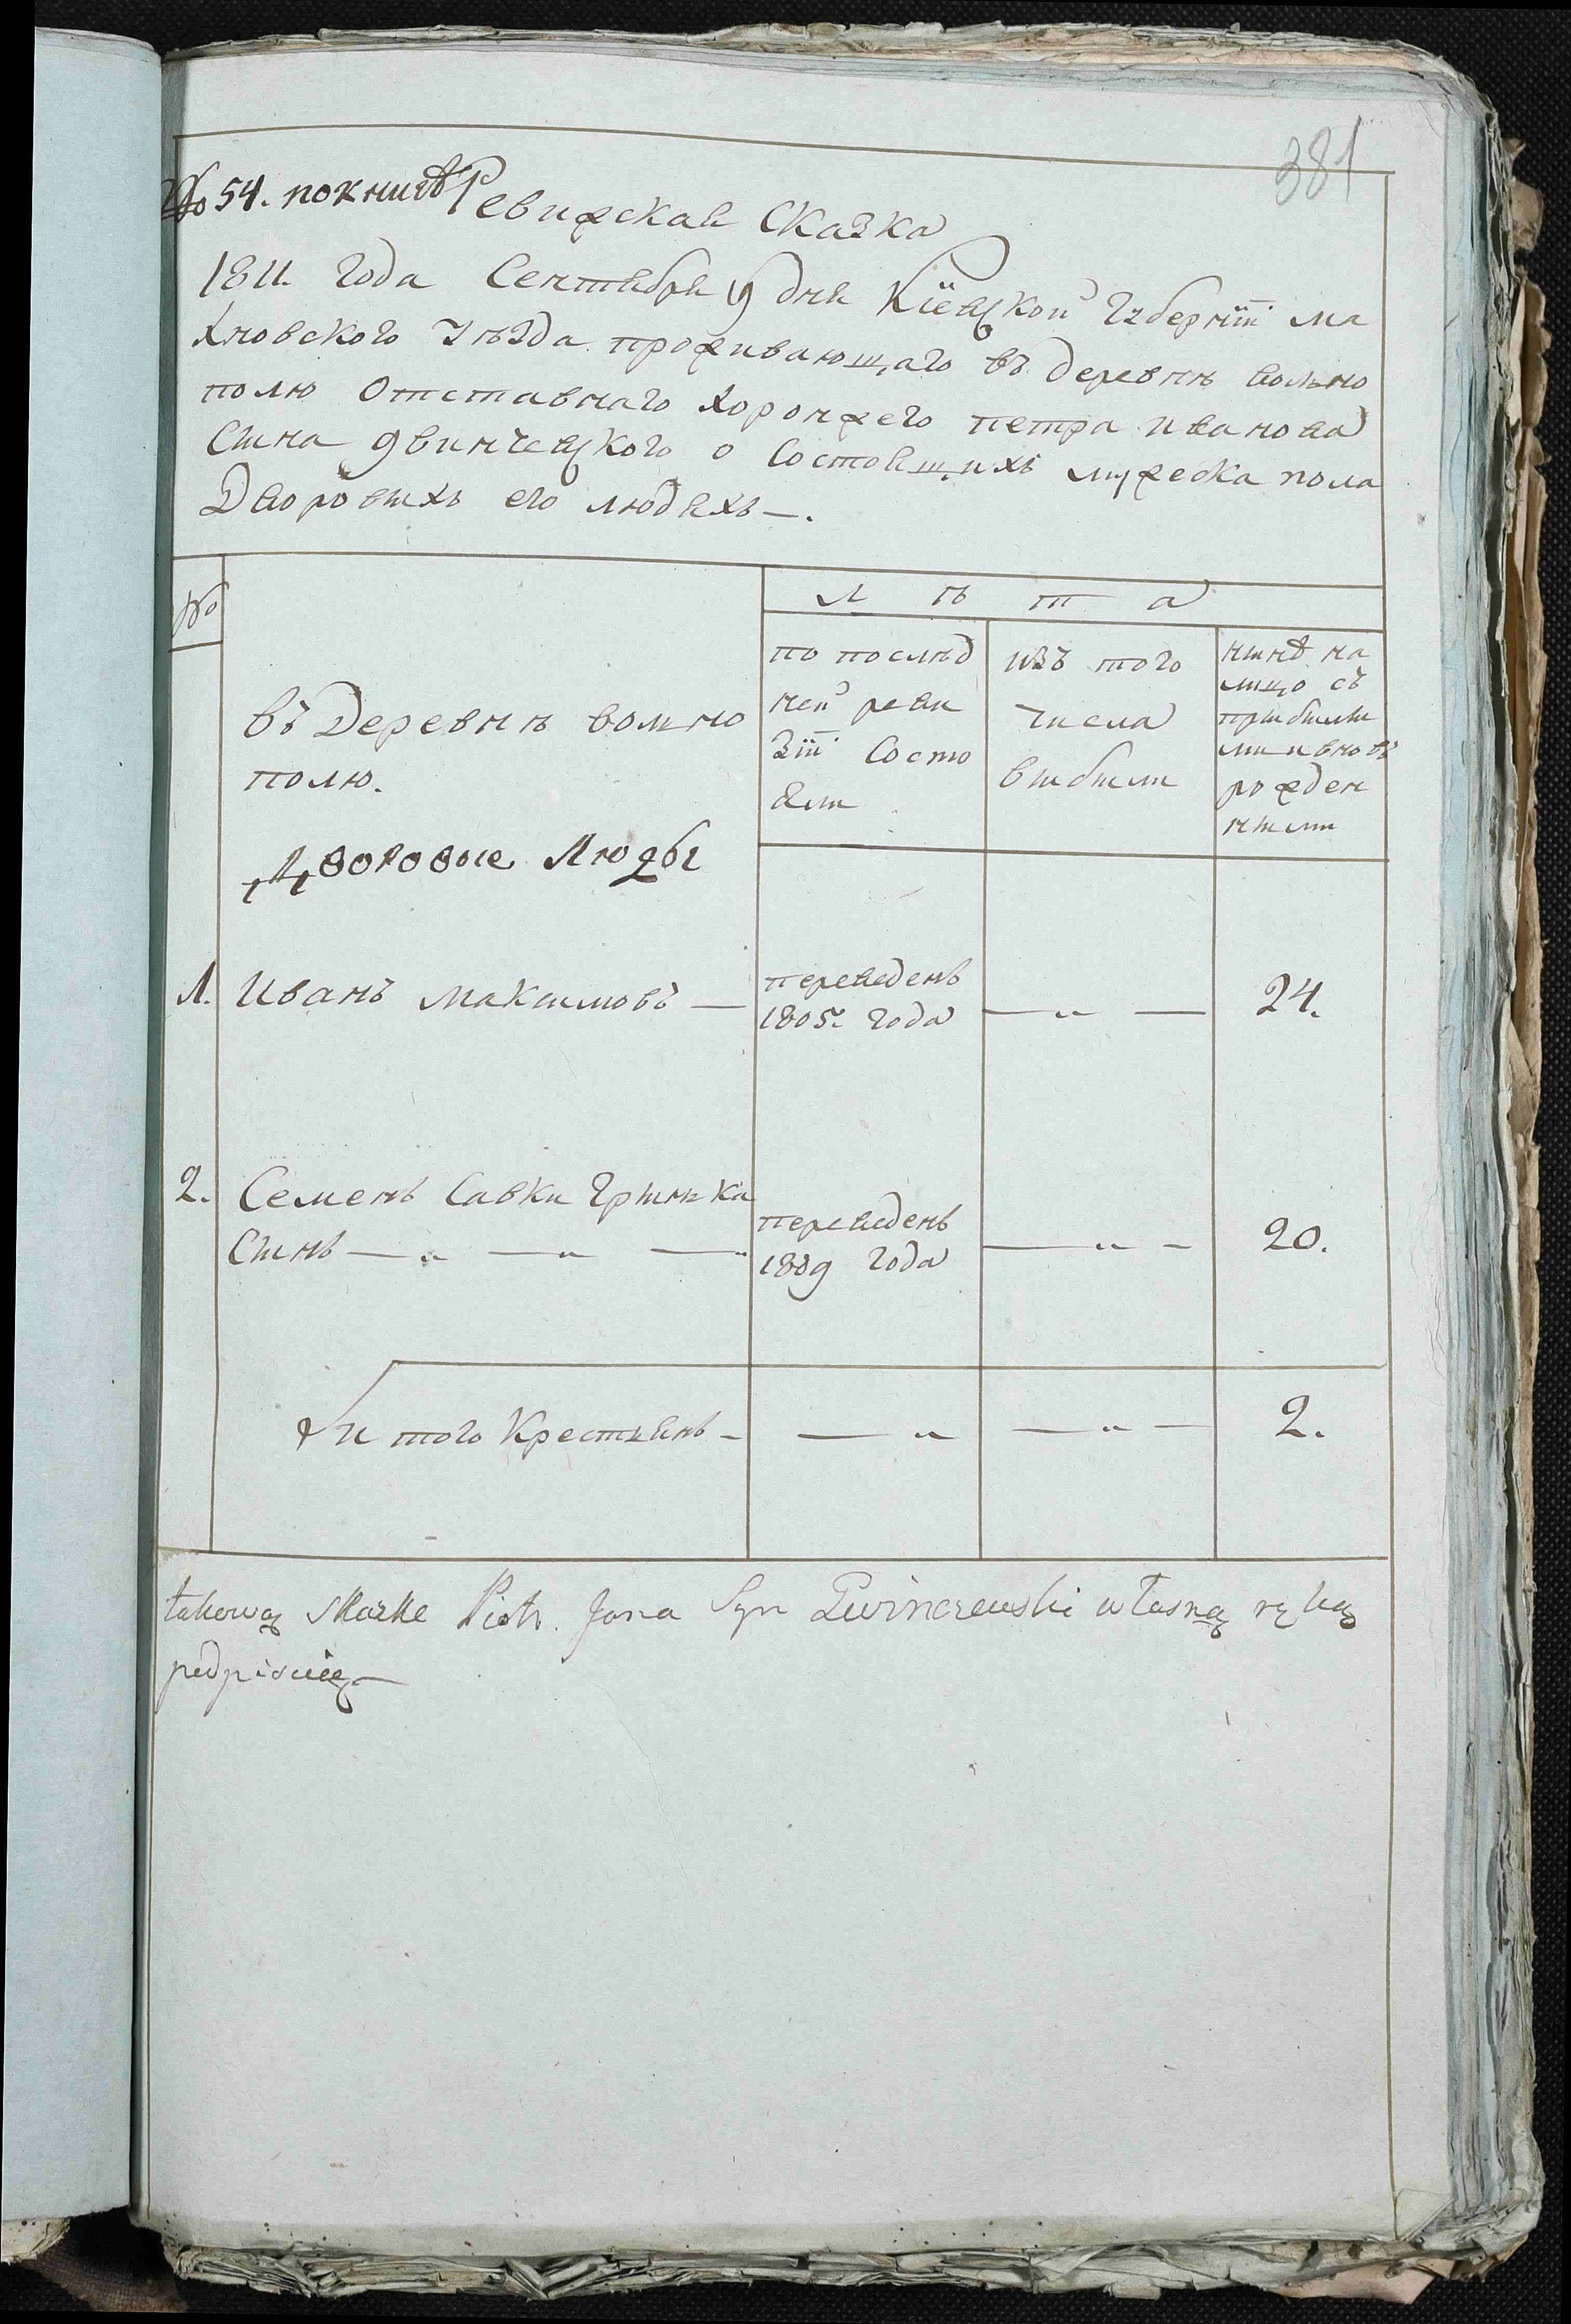 381
№ 54. по книгѣ Ревижская Сказка
1811. года Сентября 9 дня Кіевской Губерніи Ма
хновского Уѣзда проживающаго въ деревнѣ вольно
полю Отставнаго хоронжего петра иванова
Сына двинчевского о Состоящихъ мужеска пола
Дворовыхъ его людяхъ —.
№
Л ѣ т а
въ Деревнѣ вольно
полю.
Дворовые Люды
по послѣд
ней реви
зіи Состо
яли
изъ того
числа
выбыли
нынѣ на
лицо съ
прибылы
ми и вновь
рожден
ными
1. Иванъ Максимовъ — переведенъ
1805. года — „ — 24.
2. Семенъ Савки Грынька
Сынъ — „ — „ — „ переведенъ
1809 года — „ — 20.
И того Крестьянъ — — „ — „ — 2.
takową skazke Piotr Jana Syn Dwinczewski własną ręką
podpisuię —